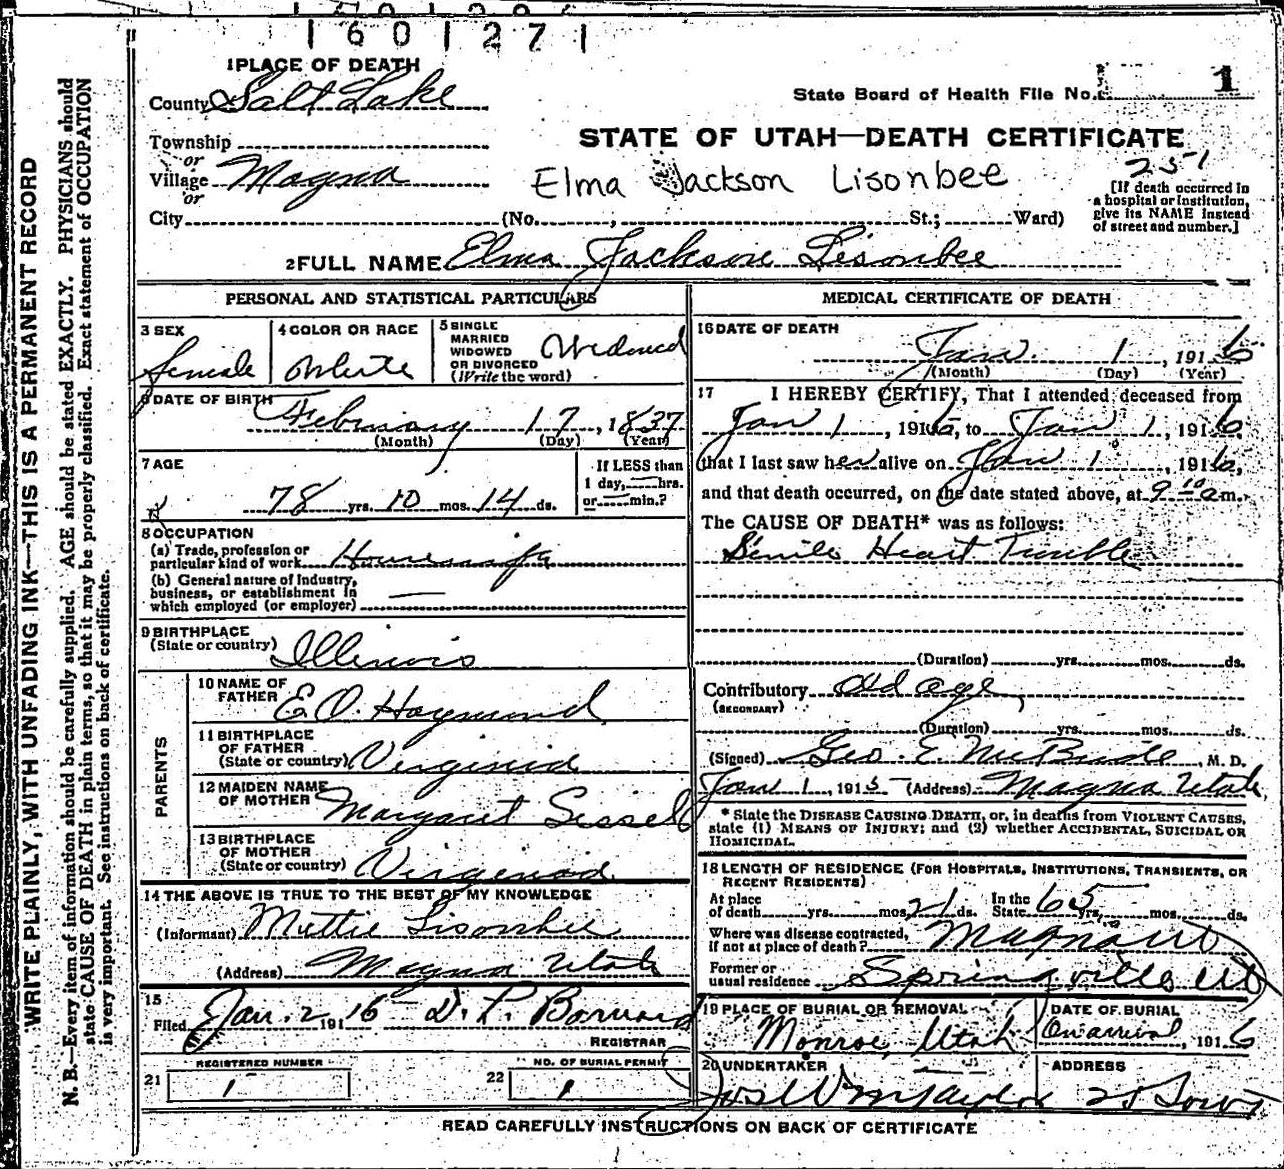 1601271
1 PLACE OF DEATH
County Salt Lake
State Board of Health File No. 1
Township
or
Village Magna
or
STATE OF UTAH—DEATH CERTIFICATE
251
Elma Jackson Lisonbee
[If death occurred in
a hospital or institution,
give its NAME instead
of street and number.]
City (No. , St.; Ward)
2 FULL NAME Elma Jackson Lisonbee
PERSONAL AND STATISTICAL PARTICULARS
3 SEX
female
4 COLOR OR RACE
White
5 SINGLE
MARRIED
WIDOWED
OR DIVORCED
(Write the word)
Widowed
6 DATE OF BIRTH
February 17, 1837
(Month) (Day) (Year)
7 AGE
78 yrs. 10 mos. 14 ds.
If LESS than
1 day, — hrs.
or — min.?
8 OCCUPATION
(a) Trade, profession or
particular kind of work Housewife
(b) General nature of Industry,
business, or establishment in
which employed (or employer) —
9 BIRTHPLACE
(State or country) Illinois
PARENTS
10 NAME OF
FATHER E.O. Haymond
11 BIRTHPLACE
OF FATHER
(State or country) Virginia
12 MAIDEN NAME
OF MOTHER Margaret Sissel
13 BIRTHPLACE
OF MOTHER
(State or country) Virginia
14 THE ABOVE IS TRUE TO THE BEST OF MY KNOWLEDGE
(Informant) Mettie Lisonbee
(Address) Magna Utah
15
Filed Jan. 2, 1916 D. P. Barnard
REGISTRAR
REGISTERED NUMBER
21 1
NO. OF BURIAL PERMIT
22 1
MEDICAL CERTIFICATE OF DEATH
16 DATE OF DEATH
Jan. 1, 1916
(Month) (Day) (Year)
17 I HEREBY CERTIFY, That I attended deceased from
Jan 1, 1916, to Jan 1, 1916,
that I last saw her alive on Jan 1, 1916,
and that death occurred, on the date stated above, at 9 10 a m.
The CAUSE OF DEATH* was as follows:
Senile Heart Trouble
(Duration) yrs. mos. ds.
Contributory old age
(SECONDARY)
(Duration) yrs. mos. ds.
(Signed) Geo. E McBride, M. D.
Jan 1, 1915 (Address) Magna Utah
* State the DISEASE CAUSING DEATH, or, in deaths from VIOLENT CAUSES,
state (1) MEANS OF INJURY; and (2) whether ACCIDENTAL, SUICIDAL OR
HOMICIDAL.
18 LENGTH OF RESIDENCE (FOR HOSPITALS, INSTITUTIONS, TRANSIENTS, OR
RECENT RESIDENTS)
At place
of death yrs. mos. 21 ds. In the
State 65 yrs. mos. ds.
Where was disease contracted,
if not at place of death? Magna Ut
Former or
usual residence Springville Ut
19 PLACE OF BURIAL OR REMOVAL
Monroe, Utah
DATE OF BURIAL
On arrival, 1916
20 UNDERTAKER
Jos Wm Taylor
ADDRESS
READ CAREFULLY INSTRUCTIONS ON BACK OF CERTIFICATE
WRITE PLAINLY, WITH UNFADING INK—THIS IS A PERMANENT RECORD
N. B.—Every item of information should be carefully supplied. AGE should be stated EXACTLY. PHYSICIANS should
state CAUSE OF DEATH in plain terms, so that it may be properly classified. Exact statement of OCCUPATION
is very important. See instructions on back of certificate.